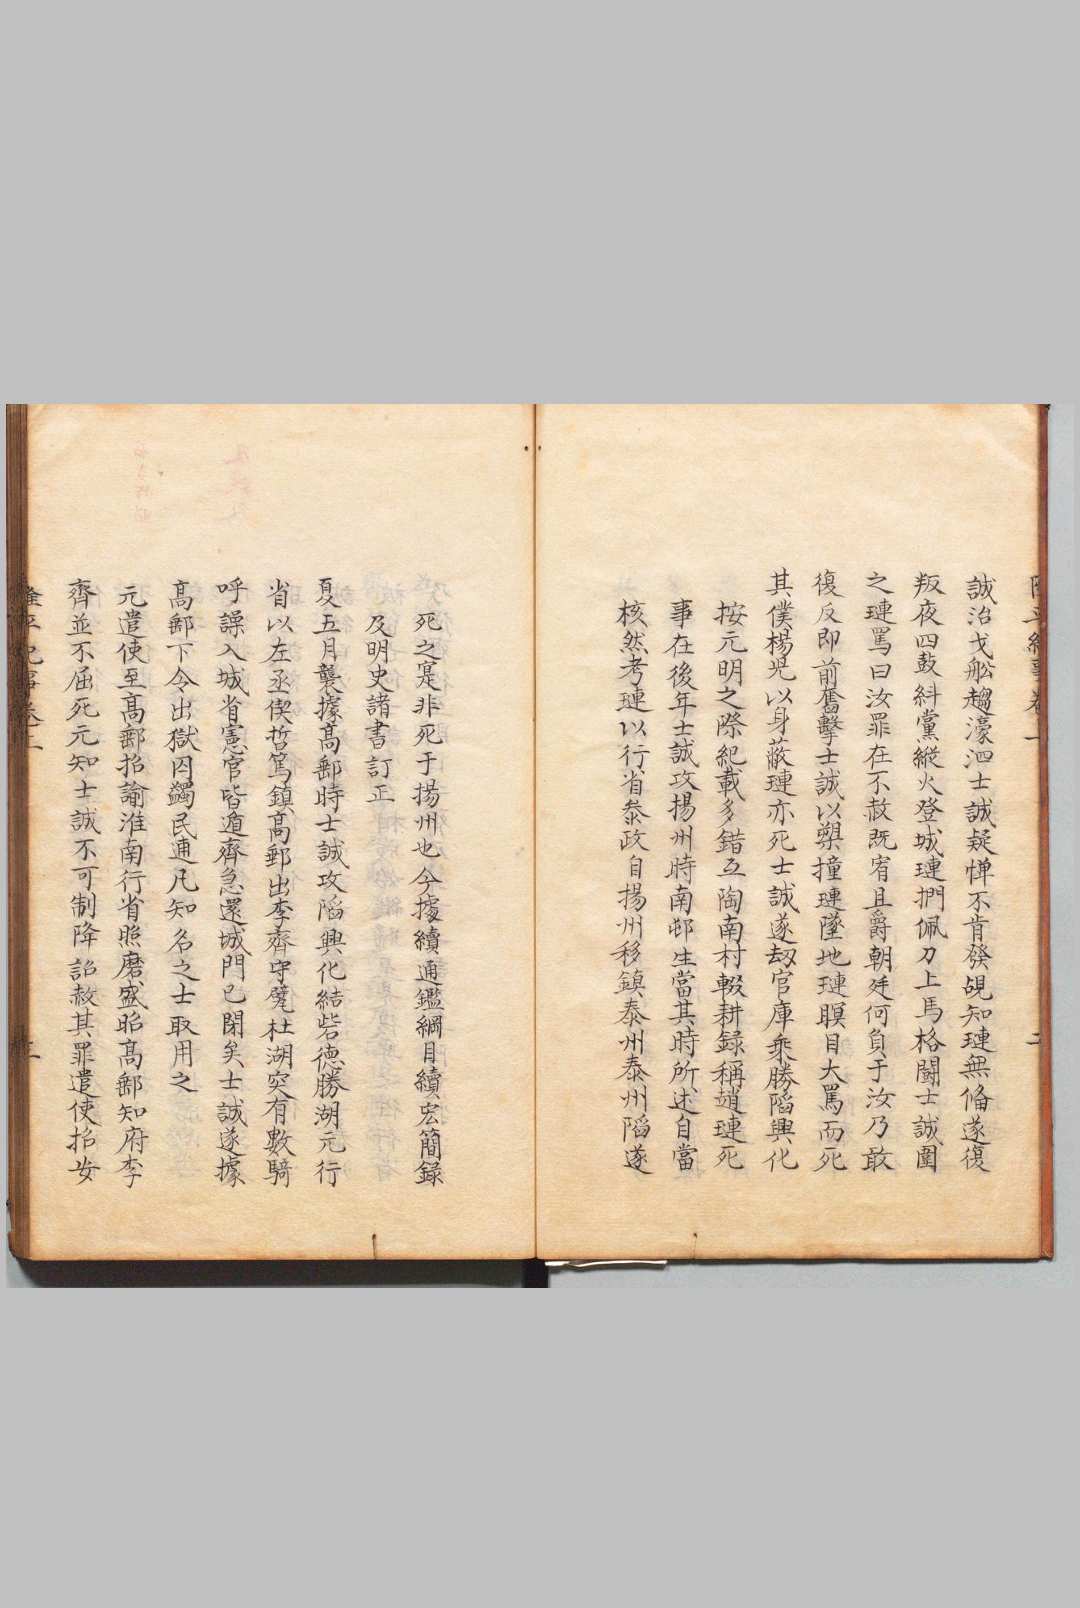 誠治戈船趨濠泗士誠疑憚不肯發覘知璉無俻遂復
叛夜四鼓紏黨縱火登城璉捫佩刀上馬格鬪士誠圍
之璉罵曰汝罪在不赦既宥且爵朝廷何負于汝乃敢
復反即前奮擊士誠以槊撞璉墜地璉瞋目大罵而死
其僕楊児以身蔽璉亦死士誠遂刼官庫乘勝䧟興化
按元明之際紀載多錯互陶南村輟耕録稱趙璉死
事在後年士誠攻揚州時南邨生當其時所述自當
核然考璉以行省叅政自揚州移鎮泰州泰州䧟遂
死之寔非死于揚州也今據續通鑑綱目續宏簡録
及明史諸書訂正
夏五月襲據髙郵時士誠攻䧟興化結砦德勝湖元行
省以左丞偰哲篤鎮髙郵出李齊守甓杜湖突有數騎
呼譟入城省憲官皆遁齊急還城門已閉矣士誠遂據
髙郵下令出獄囚蠲民逋凡知名之士取用之
元遣使至髙郵招諭淮南行省照磨盛昭髙郵知府李
齊並不屈死元知士誠不可制降詔赦其罪遣使招安
隆平紀事卷上